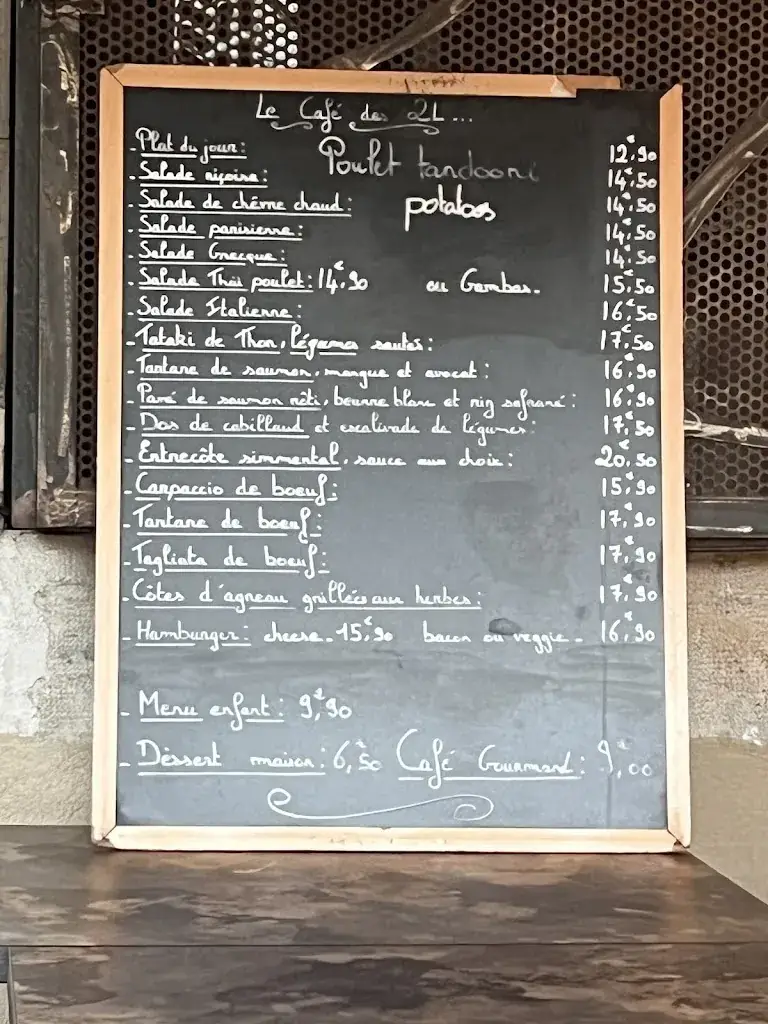 Le Café des 2L...
- Plat du jour: Poulet tandoori 12,€90
- Salade niçoise: 14,€50
- Salade de chèvre chaud: potatoes 14,€50
- Salade parisienne: 14,€50
- Salade Grecque: 14,€50
- Salade Thaï poulet: 14,€90 ou Gambas. 15,€50
- Salade Italienne: 16,€50
- Tataki de Thon, légumes sautés: 17,€50
- Tartare de saumon, mangue et avocat: 16,€90
- Pavé de saumon rôti, beurre blanc et riz safrané: 16,€90
- Dos de cabillaud et escalivade de légumes: 17,€50
- Entrecôte simmental, sauce au choix: 20,€50
- Carpaccio de boeuf: 15,€90
- Tartare de boeuf: 17,€90
- Tagliata de boeuf: 17,€90
- Côtes d'agneau grillées aux herbes: 17,€90
- Hamburger: cheese - 15,€90 bacon ou veggie - 16,€90
- Menu enfant: 9,€90
- Dessert maison: 6,€50 Café Gourmand: 9,€00